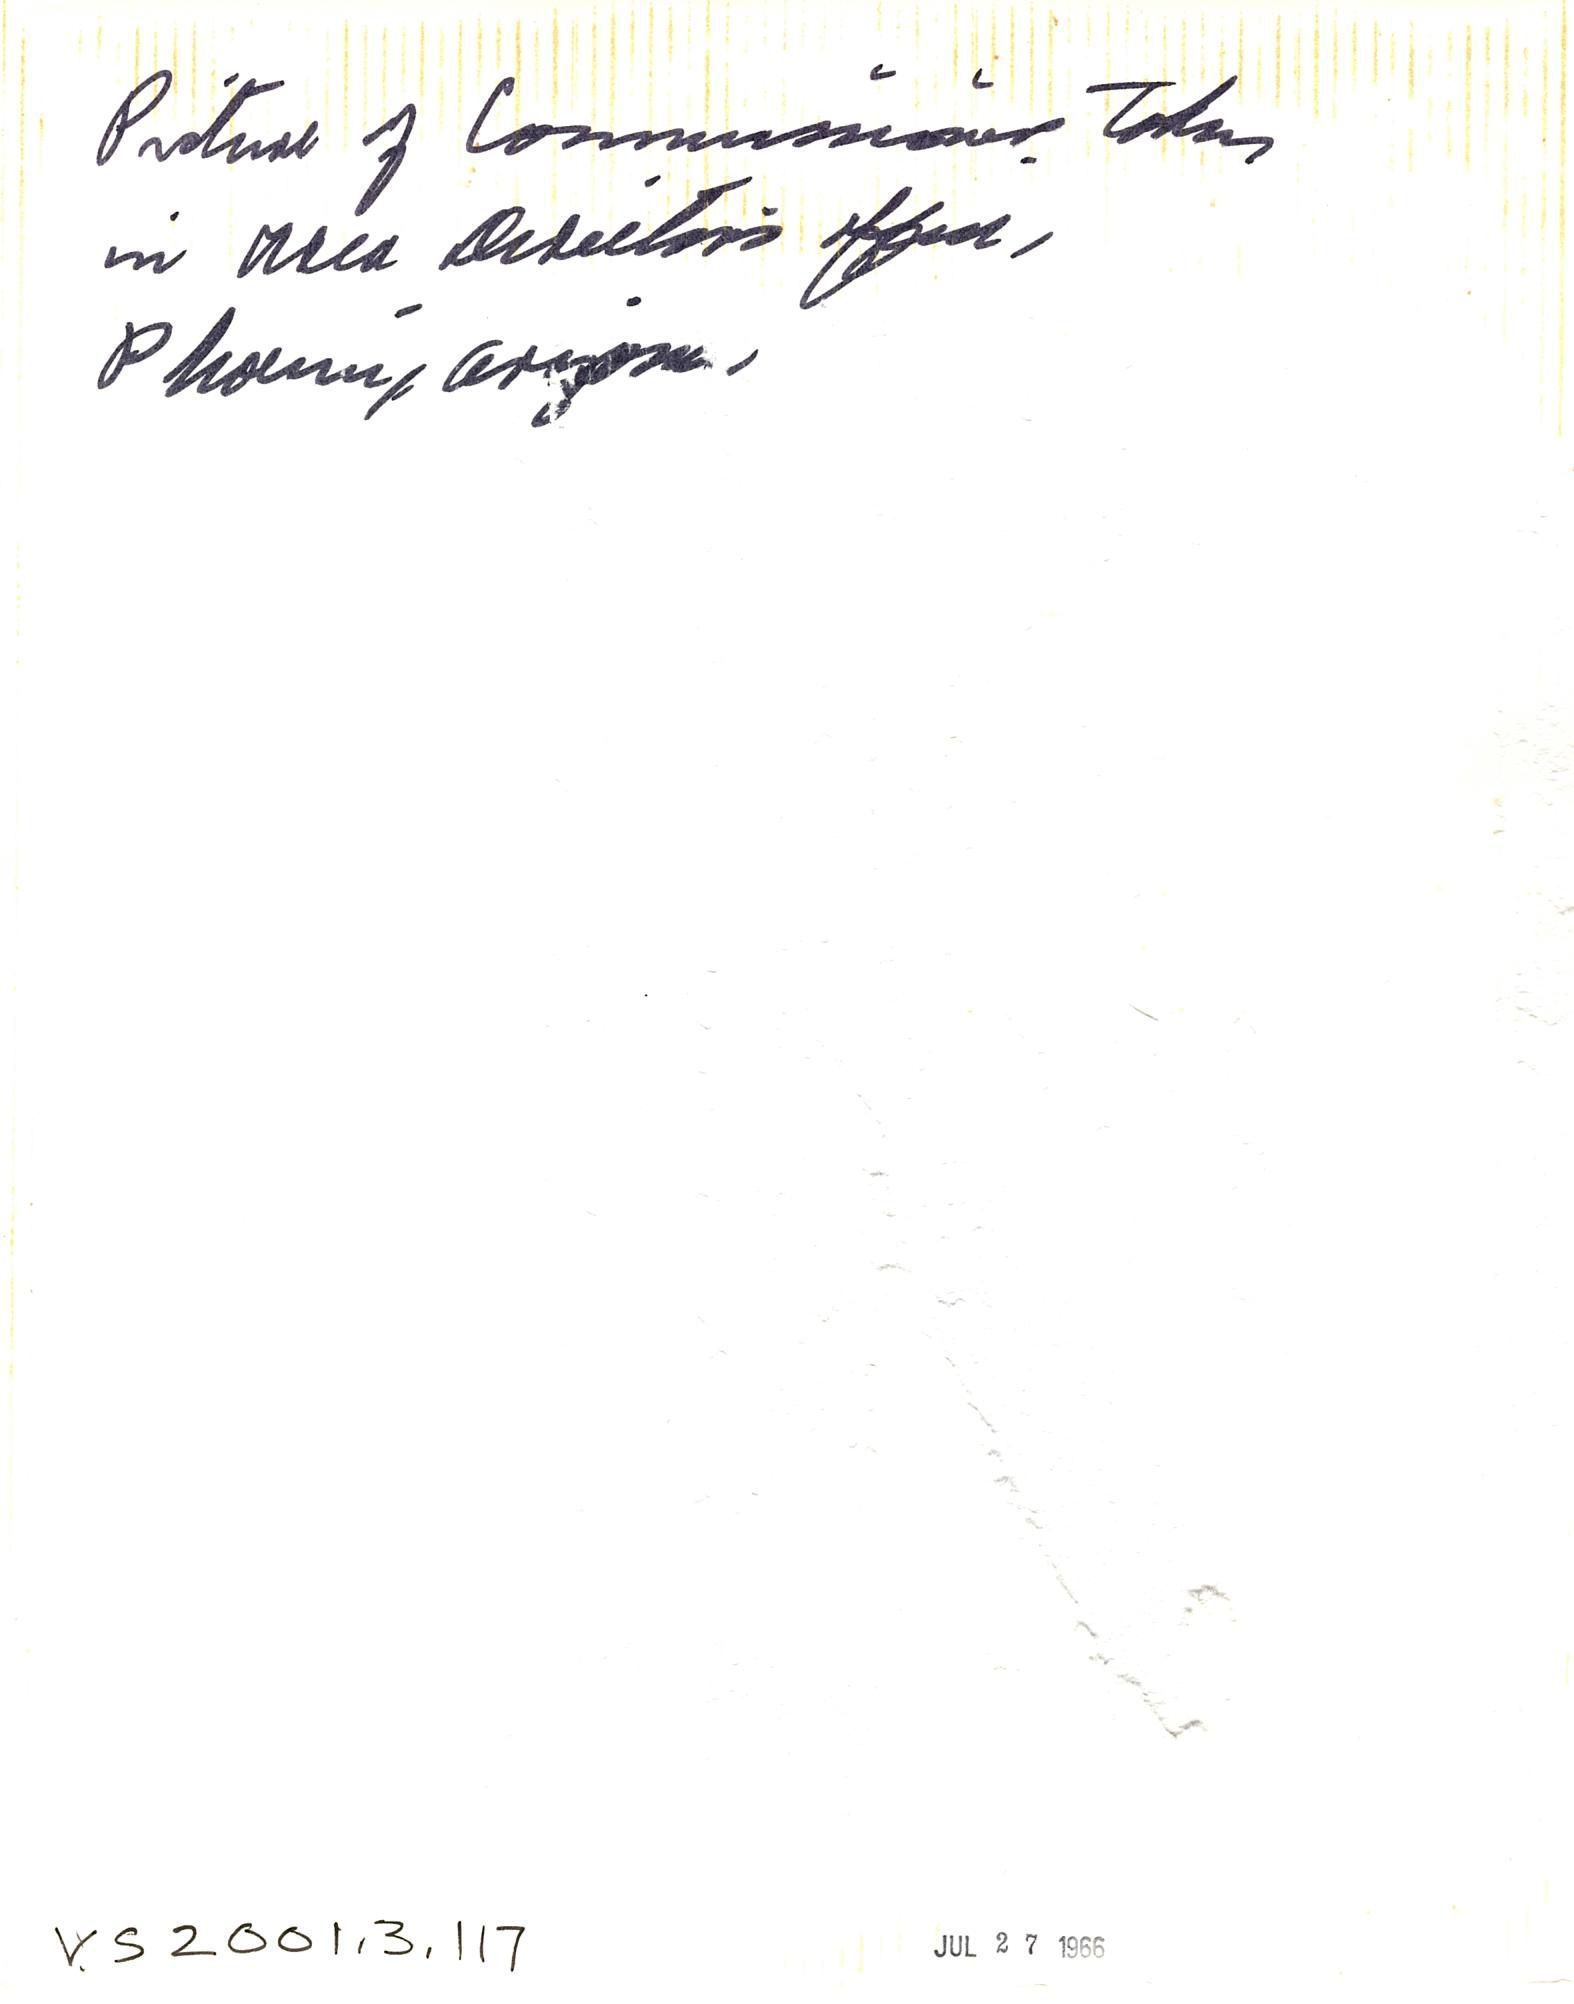 Picture of Commissioner Taken
in area Directors office,
Phoenix, Arizona,
VS2001.3.117
JUL 27 1966